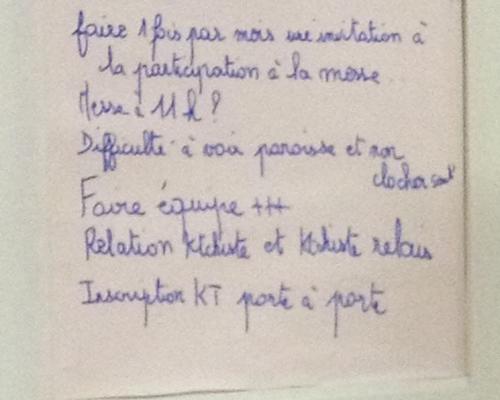 faire 1 fois par mois une invitation à
la participation à la messe
Messe à 11 h ?
Difficulté à voir paroisse et non
clocher
Faire équipe +++
Relation Ktchiste et Ktchiste relais
Inscription KT porte à porte